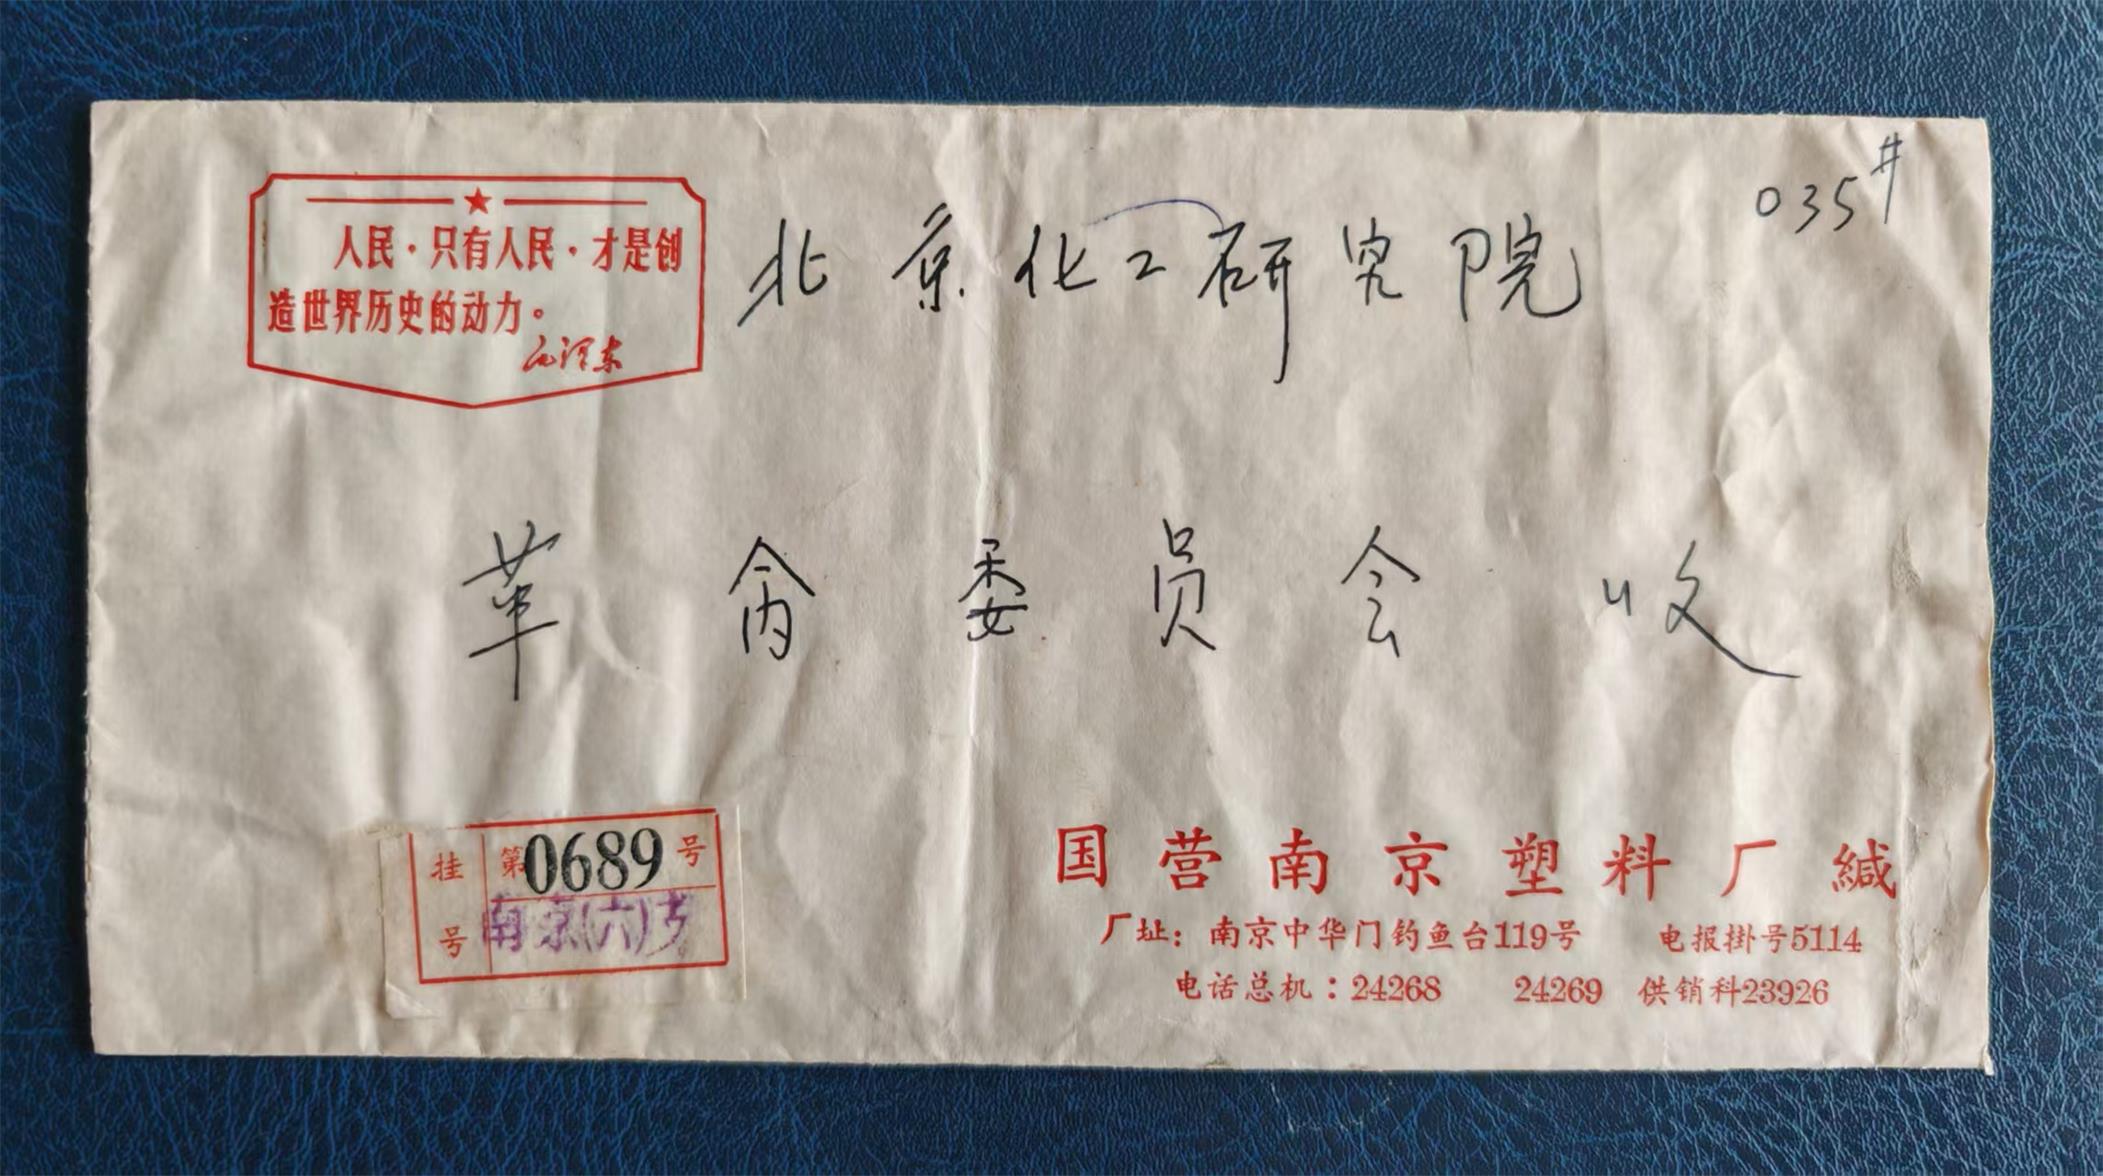 035#
人民·只有人民·才是创
造世界历史的动力。
毛泽东
北京化工研究院
革命委员会 收
挂号
第0689号
南京(六)支
国营南京塑料厂缄
厂址：南京中华门钓鱼台119号 电报掛号5114
电话总机：24268 24269 供销科23926